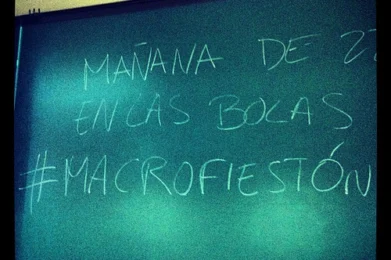 MAÑANA DE 2
EN LAS BOCAS
#MACROFIESTÓN